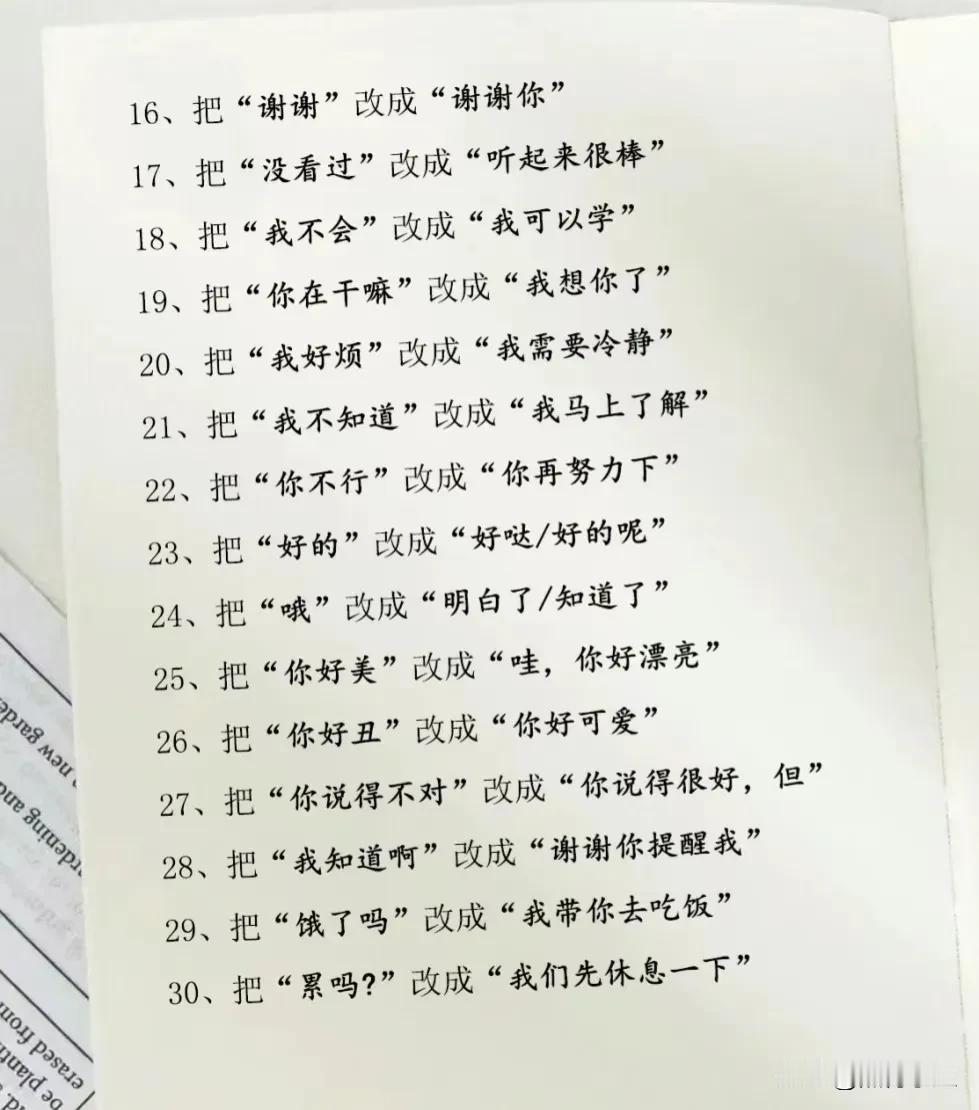 16、把“谢谢”改成“谢谢你”
17、把“没看过”改成“听起来很棒”
18、把“我不会”改成“我可以学”
19、把“你在干嘛”改成“我想你了”
20、把“我好烦”改成“我需要冷静”
21、把“我不知道”改成“我马上了解”
22、把“你不行”改成“你再努力下”
23、把“好的”改成“好哒/好的呢”
24、把“哦”改成“明白了/知道了”
25、把“你好美”改成“哇，你好漂亮”
26、把“你好丑”改成“你好可爱”
27、把“你说得不对”改成“你说得很好，但”
28、把“我知道啊”改成“谢谢你提醒我”
29、把“饿了吗”改成“我带你去吃饭”
30、把“累吗?”改成“我们先休息一下”
new garde
rdening and
erased from
be planti